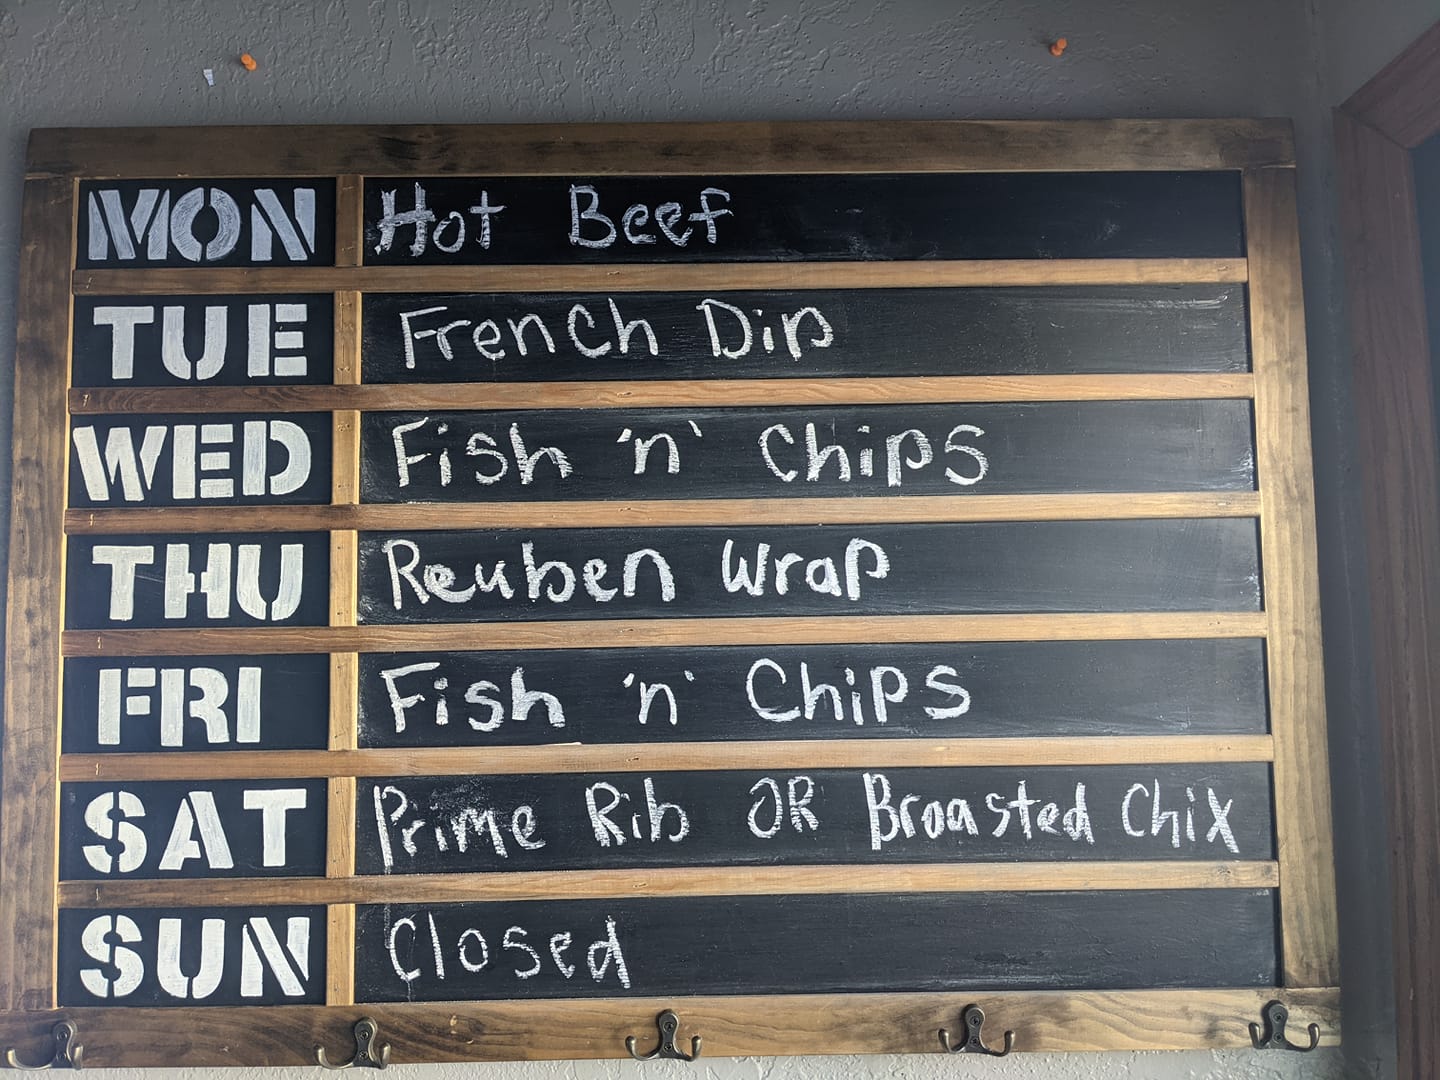 MON Hot Beef
TUE French Dip
WED Fish 'n' Chips
THU Reuben Wrap
FRI Fish 'n' Chips
SAT Prime Rib OR Broasted Chix
SUN Closed